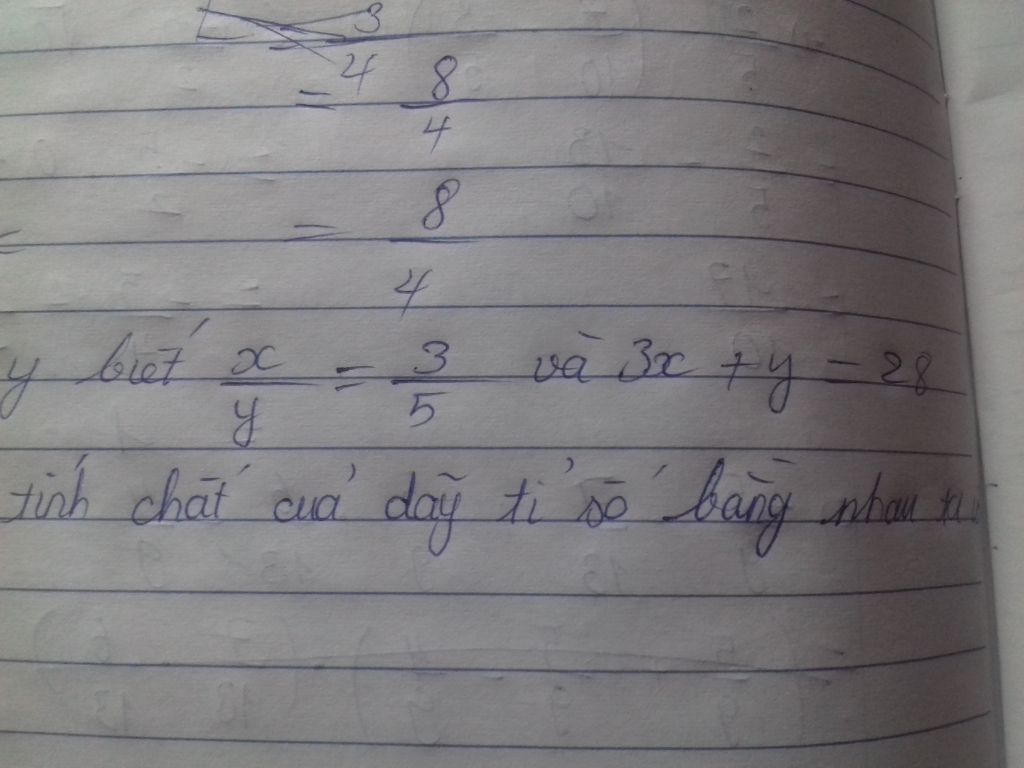 = 3/4
= 8/4
= 8/4
y biết x/y = 3/5 và 3x + y = 28
tính chất của dãy tỉ số bằng nhau ta